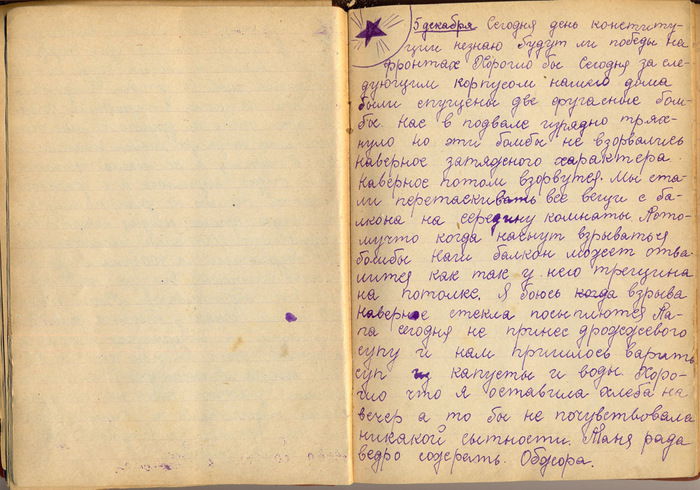 5 декабря Сегодня день конститу-
ции незнаю будут ли победы на
фронтах Хорошо бы Сегодня за сле-
дующим корпусом нашего дома
были спущены две фугасные бом-
бы. Нас в подвале изрядно трях-
нуло но эти бомбы не взорвались
наверное затяжного характера
наверное потом взорвутся. Мы ста-
ли перетаскивать все вещи с ба-
лкона на середину комнаты Пото-
мучто когда начнут взрываться
бомбы Наш балкон может отва-
лится как так у него трещина
на потолке. Я боюсь когда взрыва
наверное стекла посыплются Па-
па сегодня не принес дрожжевого
супу и нам пришлось варить
суп из капусты и воды Хоро-
шо что я оставила хлеба на
вечер а то бы не почувствовала
никакой сытности. Таня рада
ведро сожрать. Обжора.